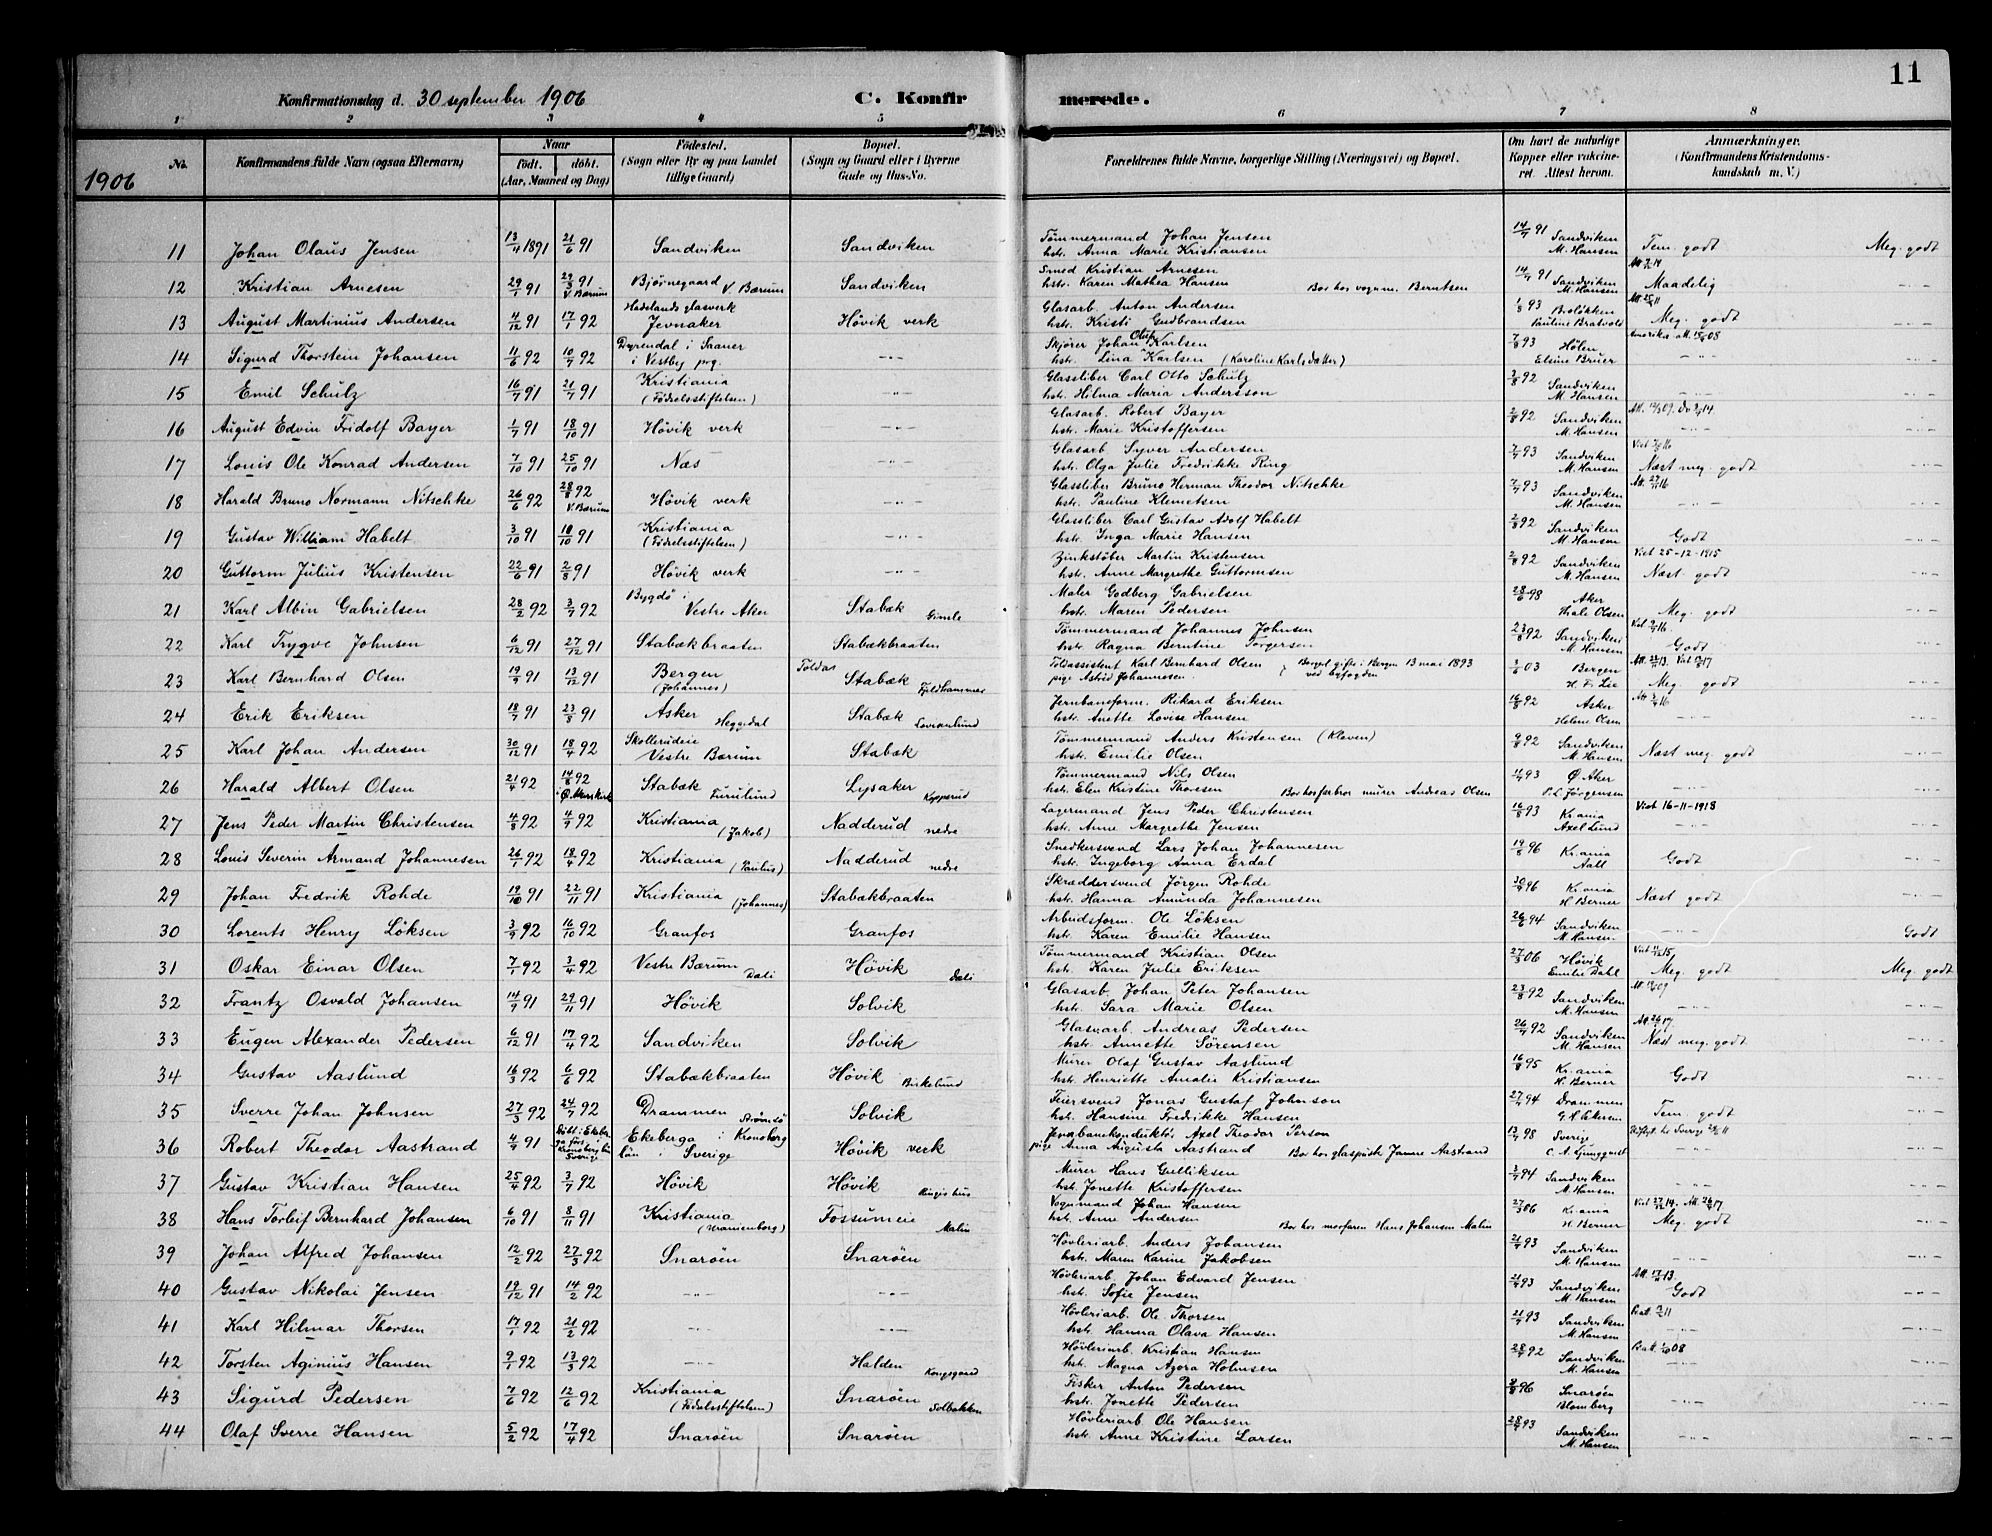 11
Konfirmationsdag d. 30 september 1906
C. Konfirmerede.
1 2 3 4 5 6 7 8
1906
No. Konfirmandens fulde Navn (ogsaa Efternavn) Naar født. døbt. (Aar, Maaned og Dag) Fødested. (Sogn eller By og paa Landet tillige Gaard) Bopæl. (Sogn og Gaard eller i Byerne Gade og Hus-No. Forældrenes fulde Navne, borgerlige Stilling (Næringsvei) og Bopæl. Om havt de naturlige Kopper eller vaccineret. Attest herom. Anmærkninger. (Konfirmandens Kristendomskundskab m. V.)
11 Johan Olaus Jensen 13/4 1891 21/6 91 Sandviken Sandviken Tømmermand Johan Jensen hstr. Anna Marie Kristiansen 14/7 91 Sandviken M. Hansen Tem. godt Meg. godt
12 Kristian Arnesen 29/1 91 29/3 91 V. Bærum Bjørnegaard V. Bærum Sandviken Smed Kristian Arnesen hstr. Karen Mathea Hansen Bor hos vognm. Berntsen 14/7 91 Sandviken M. Hansen Maadelig
13 August Martinius Andersen 4/12 91 17/1 92 Hadelands glasverk Jevnaker Høvik verk Glasarb. Anton Andersen hstr. Kristi Gudbrandsen 1/8 93 Pauline Bratvold Meg. godt
14 Sigurd Thorstein Johansen 11/6 92 10/7 92 Dyrendal i Saaner i Vestby prg. -"- Skjører Johan Oluf Karlsen hstr. Lina Karlsen (Karoline Karlsdatter) 7/8 93 Hølen Elsine Bruer Amerika att. 15/4 08 -"-
15 Emil Schulz 16/7 91 21/7 91 Kristiania (Fødselsstiftelsen) -"- Glassliber Carl Otto Schulz hstr. Hilma Maria Andersson 3/8 92 Sandviken M. Hansen -"-
16 August Edvin Fridolf Bayer 1/7 91 18/10 91 Høvik verk -"- Glasarb. Robert Bayer hstr. Marie Kristoffersen 2/8 92 Sandviken M. Hansen -"-
17 Louis Ole Konrad Andersen 7/10 91 25/10 91 Næs -"- Glasarb Syver Andersen hstr. Olga Julie Fredrikke Ring 7/7 93 Sandviken M. Hansen Næst meg. godt
18 Harald Bruno Normann Nitschke 26/6 92 28/8 92 V. Bærum Høvik verk -"- Glassliber Bruno Herman Theodor Nitschke hstr. Pauline Klemetsen 7/7 93 Sandviken M. Hansen -"-
19 Gustav William Habelt 3/10 91 10/10 91 Kristiania (Fødselsstiftelsen) -"- Glassliber Carl Gustav Adolf Habelt hstr. Inga Marie Hansen 2/8 92 Sandviken M. Hansen Godt
20 Guttorm Julius Kristensen 22/6 91 2/8 91 Høvik verk -"- Zinkstøber Martin Kristensen hstr. Anne Margrethe Guttormsen 2/8 92 Sandviken M. Hansen Viet 25-12-1915 Næst godt
21 Karl Albin Gabrielsen 28/2 92 3/7 92 Bygdø i Vestre Aker Stabæk Gimle Maler Godberg Gabrielsen hstr. Maren Pedersen 28/6 98 Aker Hiale Olsen Meg. godt
22 Karl Trygve Johnsen 6/12 91 27/12 91 Stabækbraaten Stabækbraaten Tømmermand Johannes Johnsen hstr. Ragna Berntine Torgersen 23/8 92 Sandviken M. Hansen Godt
23 Karl Bernhard Olsen 19/9 91 13/12 91 Bergen (Johannes) Stabæk Fjeldhammer Toldassistent Karl Bernhard Olsen pige Astrid Johannesen Borgel. gifte i Bergen 13 mai 1893 ved byfogden 3/6 03 Bergen H. F. Lie Meg. godt
24 Erik Eriksen 18/7 91 23/8 91 Asker Heggedal Stabæk Lovisenlund Jernbaneform. Rikard Eriksen hstr. Anette Lovise Hansen 16/8 92 Asker Helene Olsen -"-
25 Karl Johan Andersen 30/12 91 18/4 92 Skollerudeie Vestre Bærum Stabæk Tømmermand Anders Kristensen (Kleven) hstr. Emilie Olsen 9/8 92 Sandviken M. Hansen Næst meg. godt
26 Harald Albert Olsen 21/4 92 14/8 92 Stabæk Furulund Lysaker Kopperud Tømmermand Nils Olsen hstr. Elen Kristine Thoresen Bor hos farbror murer Andreas Olsen 1/7 93 Ø. Aker P. L. Jørgensen -"-
27 Jens Peder Martin Christensen 4/8 92 4/9 92 Kristiania (Jakob) Nadderud nedre Lagermand Jens Peder Christensen hstr. Anne Margrethe Jensen 16/8 93 Kr.ania Axel Lund Viet 16-11-1918 -"-
28 Louis Severin Armand Johannesen 26/1 92 18/4 92 Kristiania (Paulus) Nadderud nedre Snedkersvend Lars Johan Johannesen hstr. Ingeborg Anna Erdal 19/8 96 Kr.ania Aall Godt
29 Johan Fredrik Rohde 19/10 91 22/11 91 Kristiania (Johannes) Stabækbraaten Skræddersvend Jørgen Rohde hstr. Hanna Amunda Johannesen 30/9 96 Kr.ania H Berner Næst godt
30 Lorents Henry Løksen 3/9 92 16/10 92 Granfos Granfos Arbeidsform. Ole Løksen hstr. Karen Emilie Hansen 26/6 94 Sandviken M. Hansen -"- Godt
31 Oskar Einar Olsen 7/1 92 3/4 92 Vestre Bærum Dali Høvik Dali Tømmermand Kristian Olsen hstr. Karen Julie Eriksen 27/3 06 Høvik Emilie Dahl Meg. godt Meg. godt
32 Frantz Osvald Johansen 14/9 91 29/11 91 Høvik Solvik Glasarb. Johan Peter Johansen hstr. Sara Marie Olsen 23/8 92 Sandviken M. Hansen -"-
33 Eugen Alexander Pedersen 6/12 91 17/4 92 Sandviken Solvik Glasarb. Andreas Pedersen hstr. Annette Sørensen 26/7 92 Sandviken M. Hansen Næst meg. godt
34 Gustav Aaslund 16/3 92 6/6 92 Stabækbraaten Høvik Birkelund Murer Olaf Gustav Aaslund hstr. Henriette Amalie Kristiansen 16/8 95 Kr.ania H. Berner Godt
35 Sverre Johan Johnsen 27/3 92 24/7 92 Drammen Strømsø Solvik Feiersvend Jonas Gustaf Johnson hstr. Hansine Fredrikke Hansen 27/7 94 Drammen Tem. godt
36 Robert Theodor Aastrand 4/9 91 Døbt i Ekeberga førs. i Kronoberg län Sverige Ekeberga i Kronoberg län i Sverige Høvik verk Jernbanekonduktør Axel Theodor Person pige Anna Augusta Aastrand Bor hos glaspuster Janne Aastrand 13/7 98 Sverige C. A. Ljungquist -"-
37 Gustav Kristian Hansen 25/4 92 3/7 92 Høvik Høvik Ringishus Murer Hans Gulliksen hstr. Jonette Kristoffersen 3/7 94 Sandviken M. Hansen -"-
38 Hans Torleif Bernhard Johansen 6/10 91 8/11 91 Kristiania (Uranienborg) Fossumeie Malin Vognmand Johan Hansen hstr. Anne Andersen Bor hos morfaren Hans Johansen Malin 27/3 06 Kr.ania H. Berner Meg. godt
39 Johan Alfred Johansen 12/2 92 27/3 92 Snarøen Snarøen Høvleriarb. Anders Johansen hstr. Maren Karine Jakobsen 21/7 93 Sandviken M. Hansen -"-
40 Gustav Nikolai Jensen 19/12 91 14/2 92 -"- -"- Høvleriarb. Johan Edvard Jensen hstr. Sofie Jensen 21/7 93 Sandviken M. Hansen Godt
41 Karl Hilmar Thorsen 17/1 92 21/2 92 -"- -"- Høvleriarb. Ole Thorsen hstr. Hanna Olava Hansen 21/7 93 Sandviken M. Hansen -"-
42 Torsten Aginius Hansen 9/1 92 13/3 92 -"- Halden Kongsgaard Høvleriarb. Kristian Hansen hstr. Magna Agora Holmsen 28/7 92 Sandviken M. Hansen -"-
43 Sigurd Pedersen 7/6 92 12/6 92 Kristiania (Fødselsstiftelsen) Snarøen Solbakken Fisker Anton Pedersen hstr. Jonette Pedersen 8/8 96 Snarøen Blomberg -"-
44 Olaf Sverre Hansen 5/2 92 17/4 92 Snarøen Snarøen Høvleriarb Ole Hansen hstr. Anne Kristine Larsen 28/7 93 Sandviken M. Hansen -"-